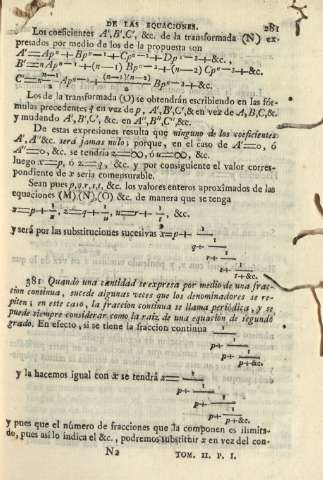 DE LAS EQUACIONES. 281
Los coeficientes A',B',C', &c. de la transformada (N) ex-
presados por medio de los de la propuesta son
A'=Apⁿ+Bpⁿ⁻¹+Cpⁿ⁻²+Dpⁿ⁻³+&c.,
B'=nApⁿ⁻¹+(n—1) Bpⁿ⁻²+(n—2) Cpⁿ⁻³+&c.
Los de la transformada (O) se obtendrán escribiendo en las fór-
mulas precedentes q en vez de p, A',B',C',& en vez de A,B,C,&c.
y mudando A',B',C', &c. en A'',B'',C'',&c.
De estas expresiones resulta que ninguno de los coeficientes
A',A''&c. será jamas nulo; porque, en el caso de A'=0, ó
A''=0, &c. se tendria z=∞, ó u=∞, &c.
luego x=p, ó z=q, &c. y por consiguiente el valor corres-
pondiente de x seria comensurable.
Sean pues p,q,r,s,t, &c. los valores enteros aproximados de las
equaciones (M),(N),(O) &c. de manera que se tenga
x=p+1/z, z=q+1/u, u=r+1/s, &c.
y será por las substituciones sucesivas x=p+1
q+1
r+1
s+1
t+&c.
381 Quando una cantidad se expresa por medio de una frac-
cion continua, sucede algunas veces que los denominadores se re-
piten; en este caso, la fraccion continua se llama periódica, y se
puede siempre considerar como la raiz de una equacion de segundo
grado. En efecto, si se tiene la fraccion continua 1
p+1
p+1
p+1
p+&c.
y la hacemos igual con x se tendrá x=1
p+1
p+1
p+1
p+&c.
y pues que el número de fracciones que la componen es ilimita-
do, pues asi lo indica el &c., podremos substituir x en vez del con-
N2 TOM. II. P. I.